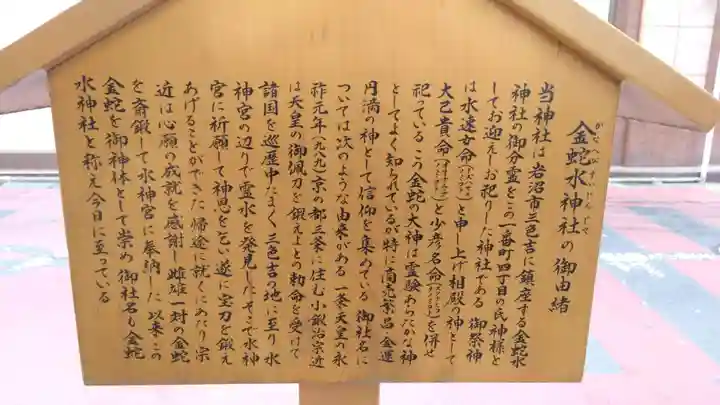 金蛇水神社の御由緒
かなへびすいじんじゃ
当神社は岩沼市三色吉に鎮座する金蛇水
神社の御分霊をこの一番町四丁目の氏神様と
してお迎えしお祀りした神社である 御祭神
は水速女命(ミズハヤメノミコト)と申し上げ相殿の神として
大己貴命(オオナムチノミコト)と少彦名命(スクナヒコナノミコト)を併せ
祀っている この金蛇の大神は霊験あらたかな神
としてよく知られているが特に商売繁昌・金運
円満の神として信仰を集めている 御社名に
ついては次のような由来がある 一条天皇の永
祚元年(九八九)京の都三条に住む小鍛冶宗近
は天皇の御佩刀を鍛えよとの勅命を受けて
諸国を巡歴中たまく三色吉の地に至り水
神宮の辺りで霊水を発見したそこで水神
宮に祈願して神恩を乞い遂に宝刀を鍛え
あげることができた 帰途に就くにあたり宗
近は心願の成就を感謝し雌雄一対の金蛇
を斎鍛して水神宮に奉納した 以来この
金蛇を御神体として崇め 御社名も金蛇
水神社と称え今日に至っている